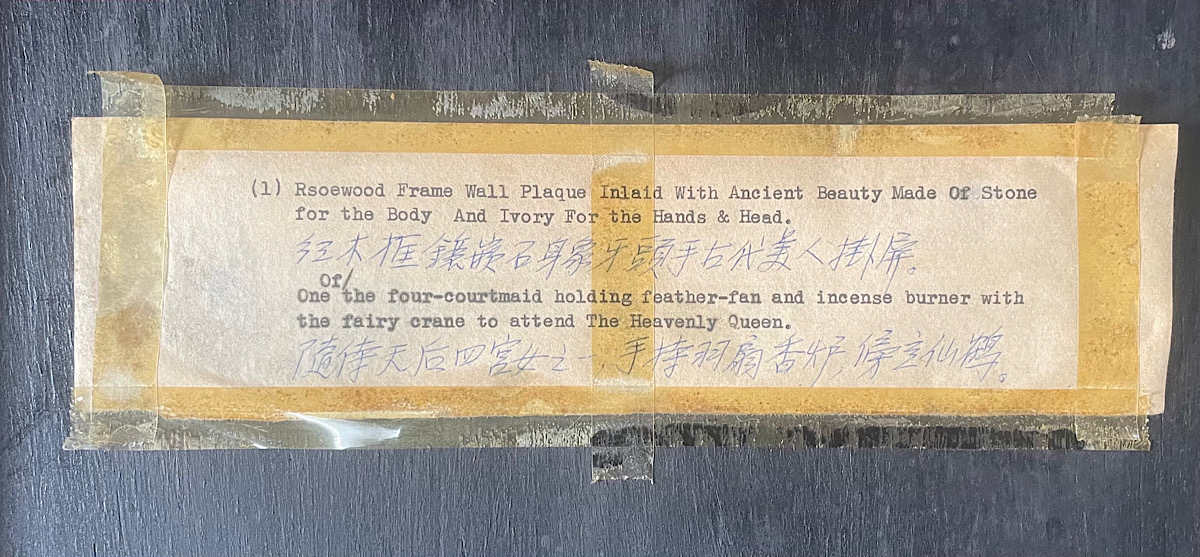 (1) Rsoewood Frame Wall Plaque Inlaid With Ancient Beauty Made Of Stone
for the Body And Ivory For the Hands & Head.
红木框鑲嵌石身象牙頭手古代美人掛屏。
Of/
One the four-courtmaid holding feather-fan and incense burner with
the fairy crane to attend The Heavenly Queen.
隨侍天后四宫女之一，手持羽扇香炉，傍立仙鹤。